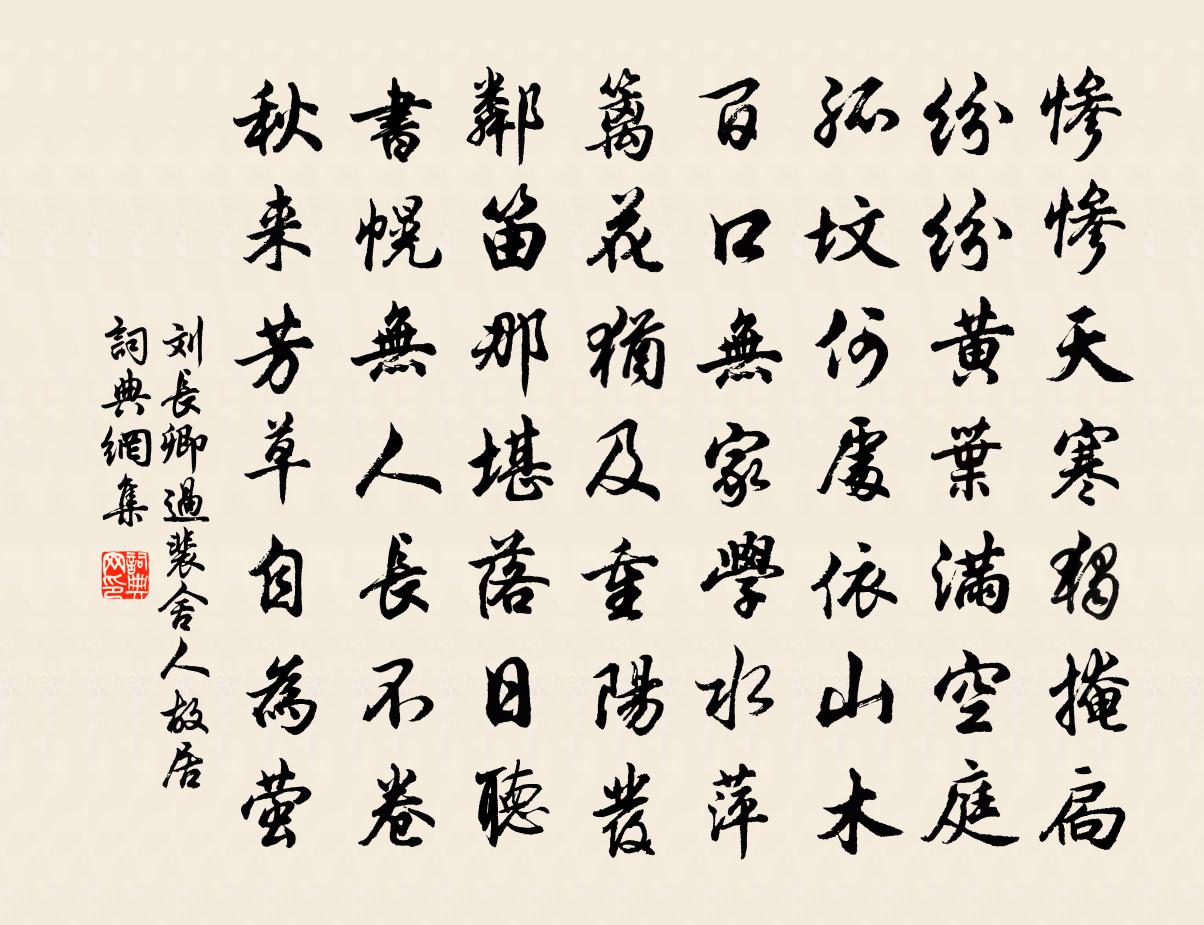 慘慘天寒獨掩扃
紛紛黃葉滿空庭
孤墳何處依山木
百口無家學水萍
籬花猶及重陽發
鄰笛那堪落日聽
書幌無人長不卷
秋来芳草自為螢
刘長卿過裴舍人故居
詞典網集
詞典网印